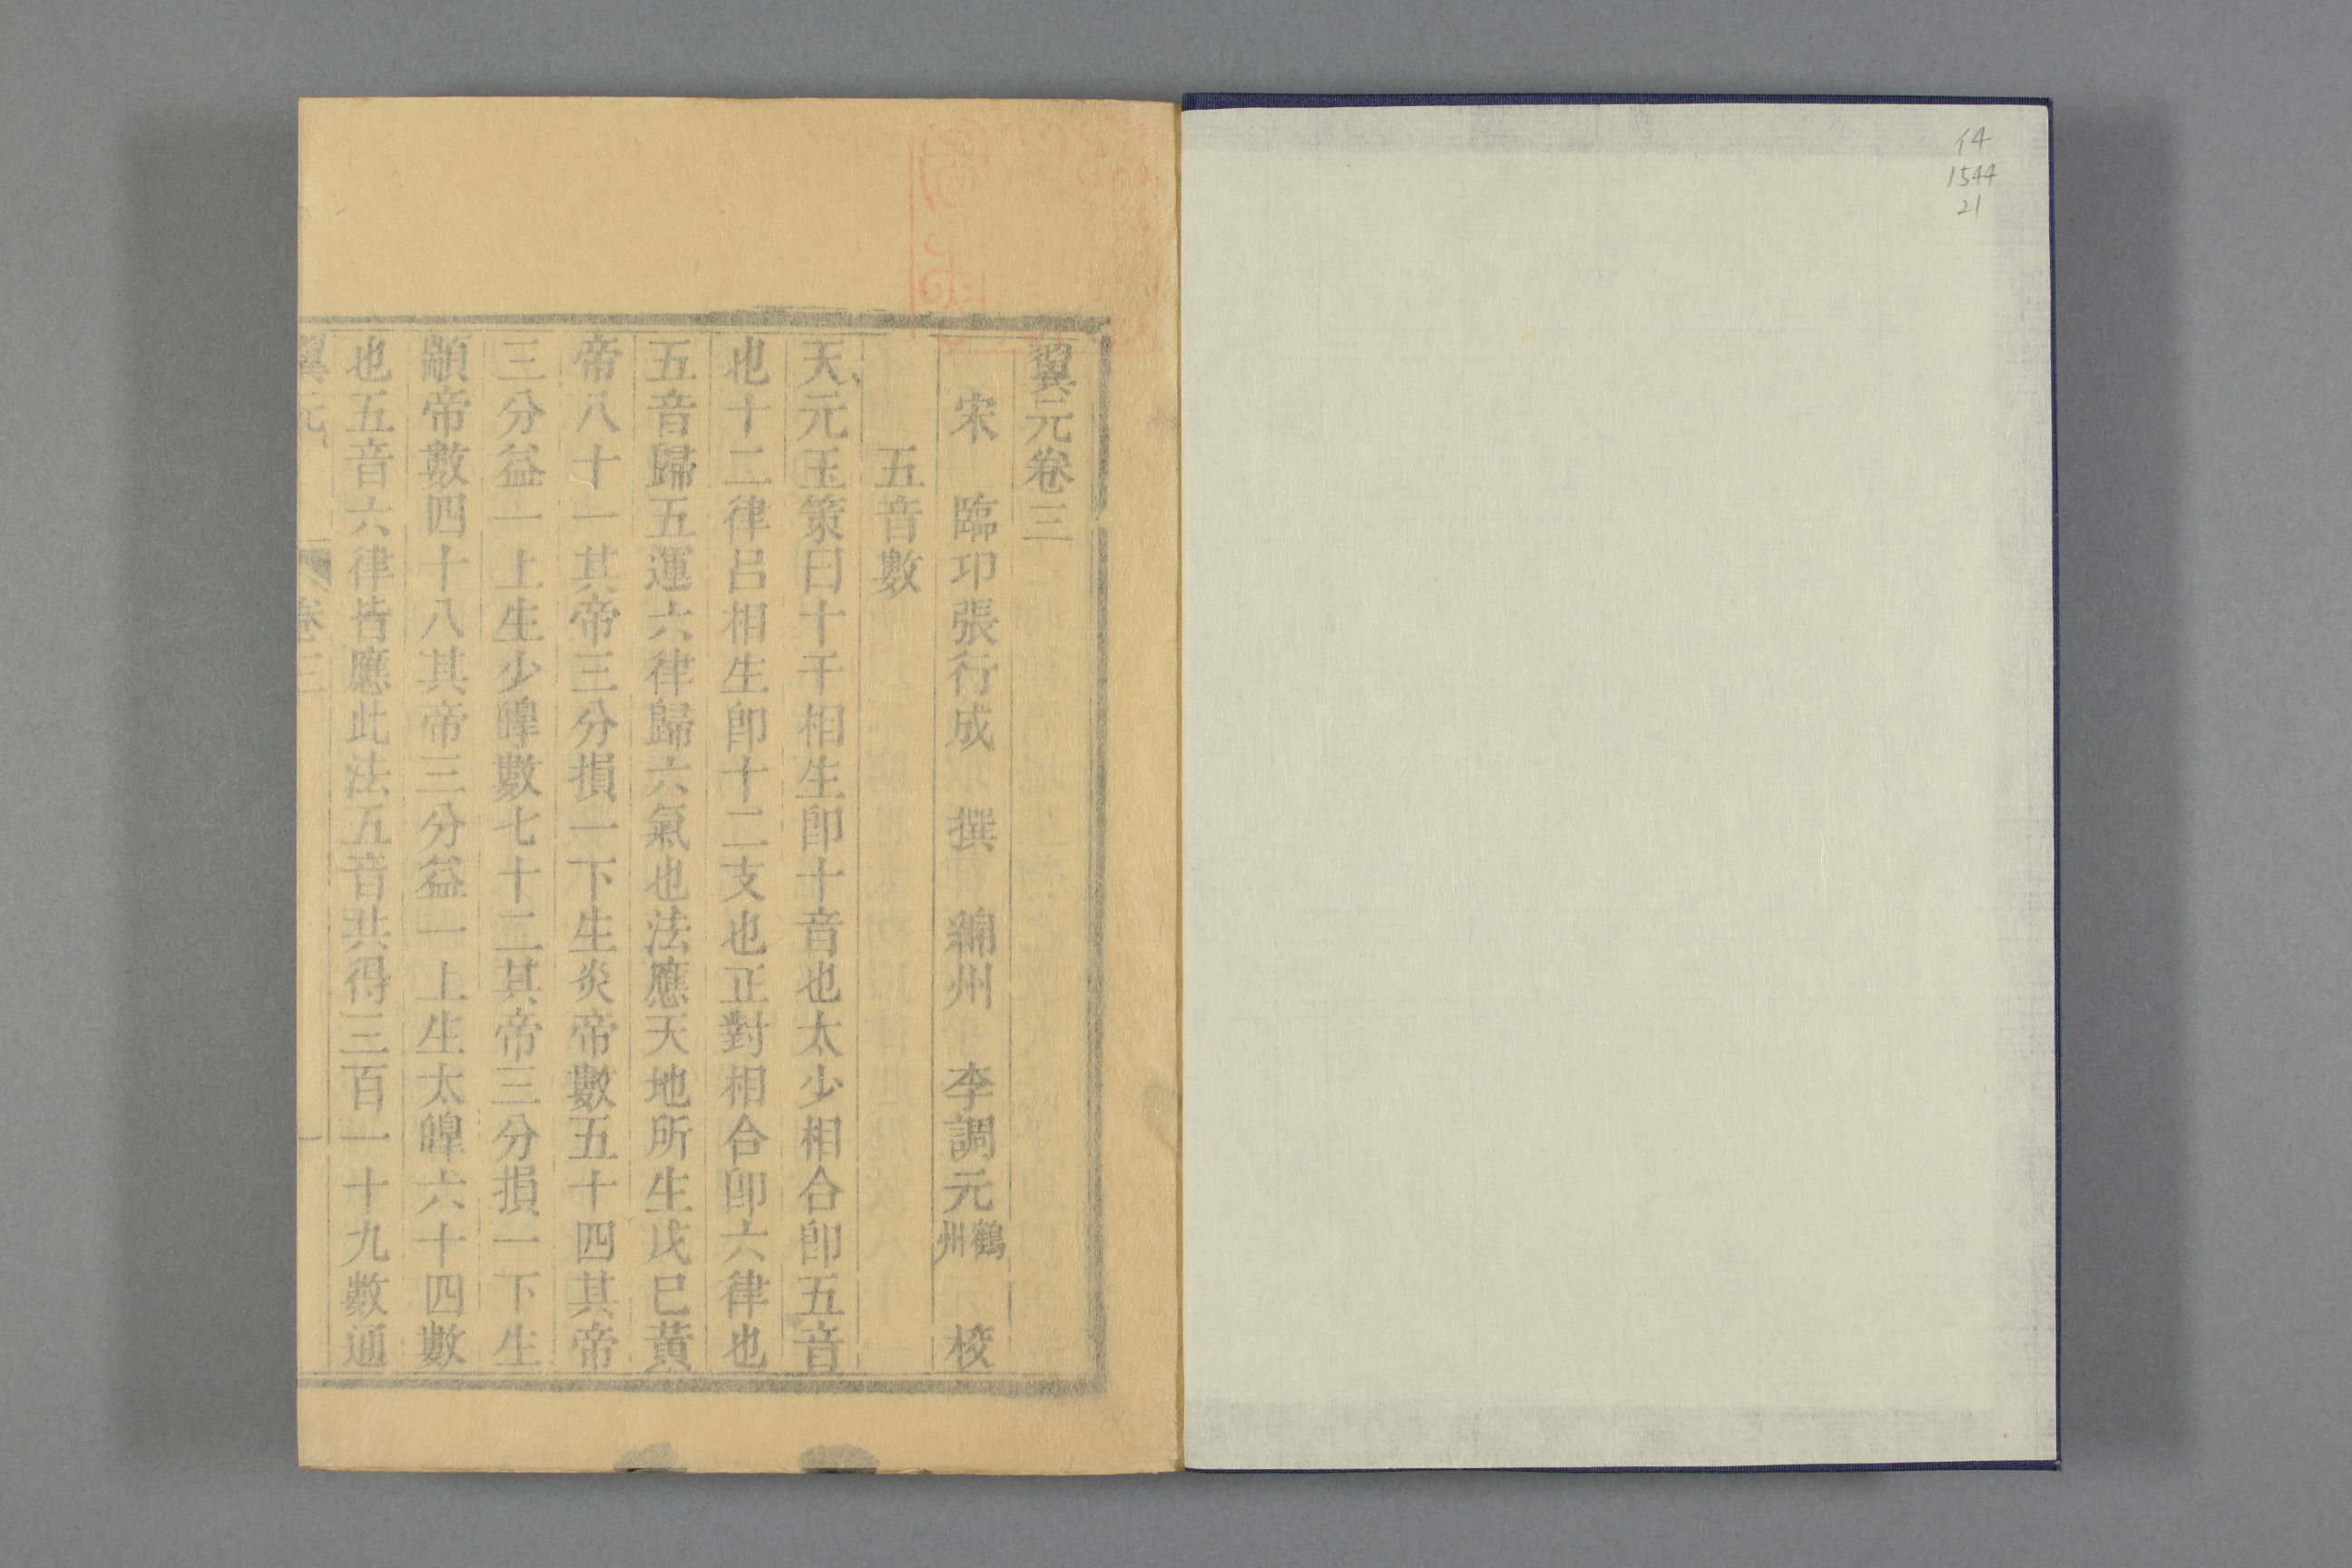 14
1544
21
翼元卷三
宋 臨邛張行成 撰 綿州 李調元鶴州 校
五音數
天元玉策曰十干相生卽十音也太少相合卽五音
也十二律呂相生卽十二支也正對相合卽六律也
五音歸五運六律歸六氣也法應天地所生戊己黃
帝八十一其帝三分損一下生炎帝數五十四其帝
三分益一上生少皡數七十二其帝三分損一下生
顓帝數四十八其帝三分益一上生太皡六十四數
也五音六律皆應此法五音共得三百一十九數通
翼元 卷三 一